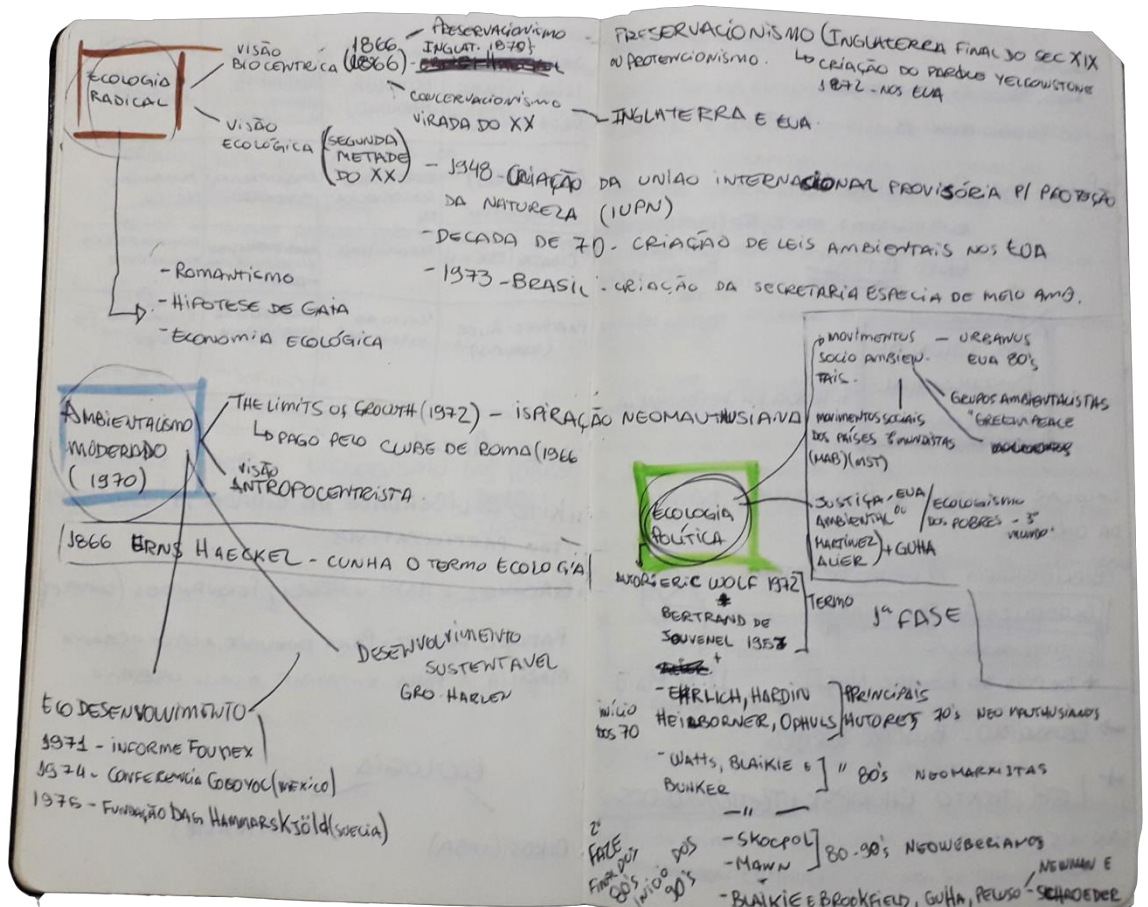 ECOLOGIA
RADICAL
VISÃO
BIOCENTRICA (1866)
1866
PRESERVACIONISMO
INGLAT. 1870's
CONCERVACIONISMO
VIRADA DO XX
- INGLATERRA E EUA.
PRESERVACIONISMO (INGLATERRA FINAL DO SEC XIX
OU PROTENCIONISMO.
↳ CRIAÇÃO DO PARQUE YELLOWSTONE
1872 - NOS EUA
VISÃO
ECOLÓGICA
(SEGUNDA
METADE
DO XX)
- 1948 - CRIAÇÃO DA UNIÃO INTERNACIONAL PROVISÓRIA P/ PROTEÇÃO
DA NATUREZA (IUPN)
- DECADA DE 70 - CRIAÇÃO DE LEIS AMBIENTAIS NOS EUA
- 1973 - BRASIL - CRIAÇÃO DA SECRETARIA ESPECIA DE MEIO AMB.
- ROMANTISMO
- HIPOTESE DE GAIA
- ECONOMIA ECOLÓGICA
AMBIENTALISMO
MODERADO
(1970)
THE LIMITS OF GROWTH (1972) - ISPIRAÇÃO NEOMAUTHUSIANA
↳ PAGO PELO CLUBE DE ROMA (1966
VISÃO
ANTROPOCENTRISTA
1866 ERNS HAECKEL - CUNHA O TERMO ECOLOGIA
DESENVOLVIMENTO
SUSTENTAVEL
GRO. HARLEN
ECODESENVOLVIMENTO
1971 - INFORME FOUNEX
1974 - CONFERENCIA COCOYOC (MEXICO)
1975 - FUNDAÇÃO DAG HAMMARSKJÖLD (SUECIA)
MOVIMENTOS
SOCIO AMBIEN.
TAIS.
- URBANOS
EUA 80's
GRUPOS AMBIENTALISTAS
"GREENPEACE
MOVIMENTOS SOCIAIS
DOS PAÍSES 3º MUNDISTAS
(MAB) (MST)
ECOLOGIA
POLÍTICA
JUSTIÇA, EUA
AMBIENTAL OU
/ECOLOGISMO
DOS POBRES - 3º
MUNDO
MARTÍNEZ
ALIER) + GUHA
AUTOR: ERIC WOLF 1972
BERTRAND DE
JOUVENEL 1957
TERMO
1ª FASE
+
INÍCIO
DOS 70
- EHRLICH, HARDIN
HEIRBORNER, OPHULS
PRINCIPAIS
AUTORES 70's NEO MAUTHUSIANOS
- WATTS, BLAIKIE E
BUNKER
" 80's NEOMARXISTAS
— " —
2ª
FAZE
FINAL DOS
80's
INICIO DOS
90's
- SKOCPOL
- MAWN
80-90's NEOWEBERIANOS
- BLAIKIE E BROOKFIELD, GUHA, PELUSO - SCHROEDER
NEWMAN E